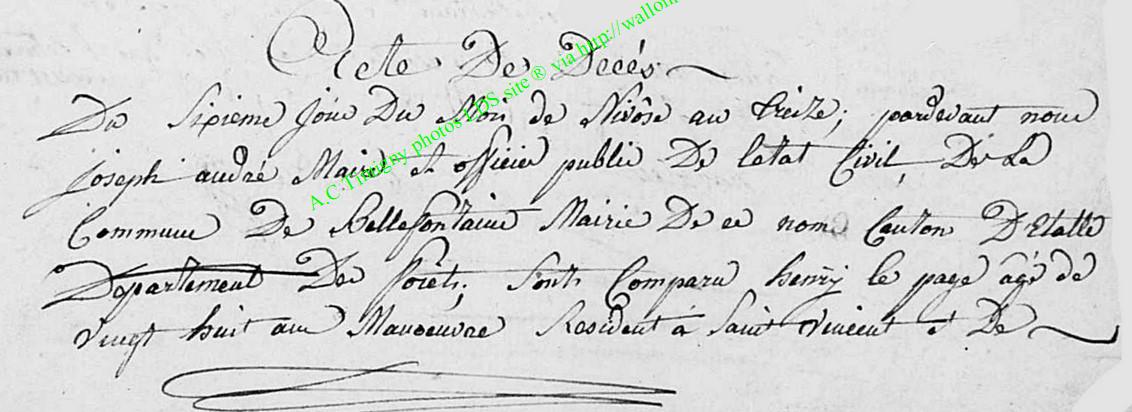 Acte De Decés
Du Sixieme jour Du Mois de Nivôse an treize; pardevant nous
joseph andré Maire et officier public De letat Civil, De La
Commune De Bellefontaine Mairie De ce nom Canton D'Etalle
Departement Des forets; Sonts Comparu henry le page âgé de
vingt huit ans Manoeuvre Resident à Saint vincent et De
A.C.Timigny photos LDS site ® via http://wallon